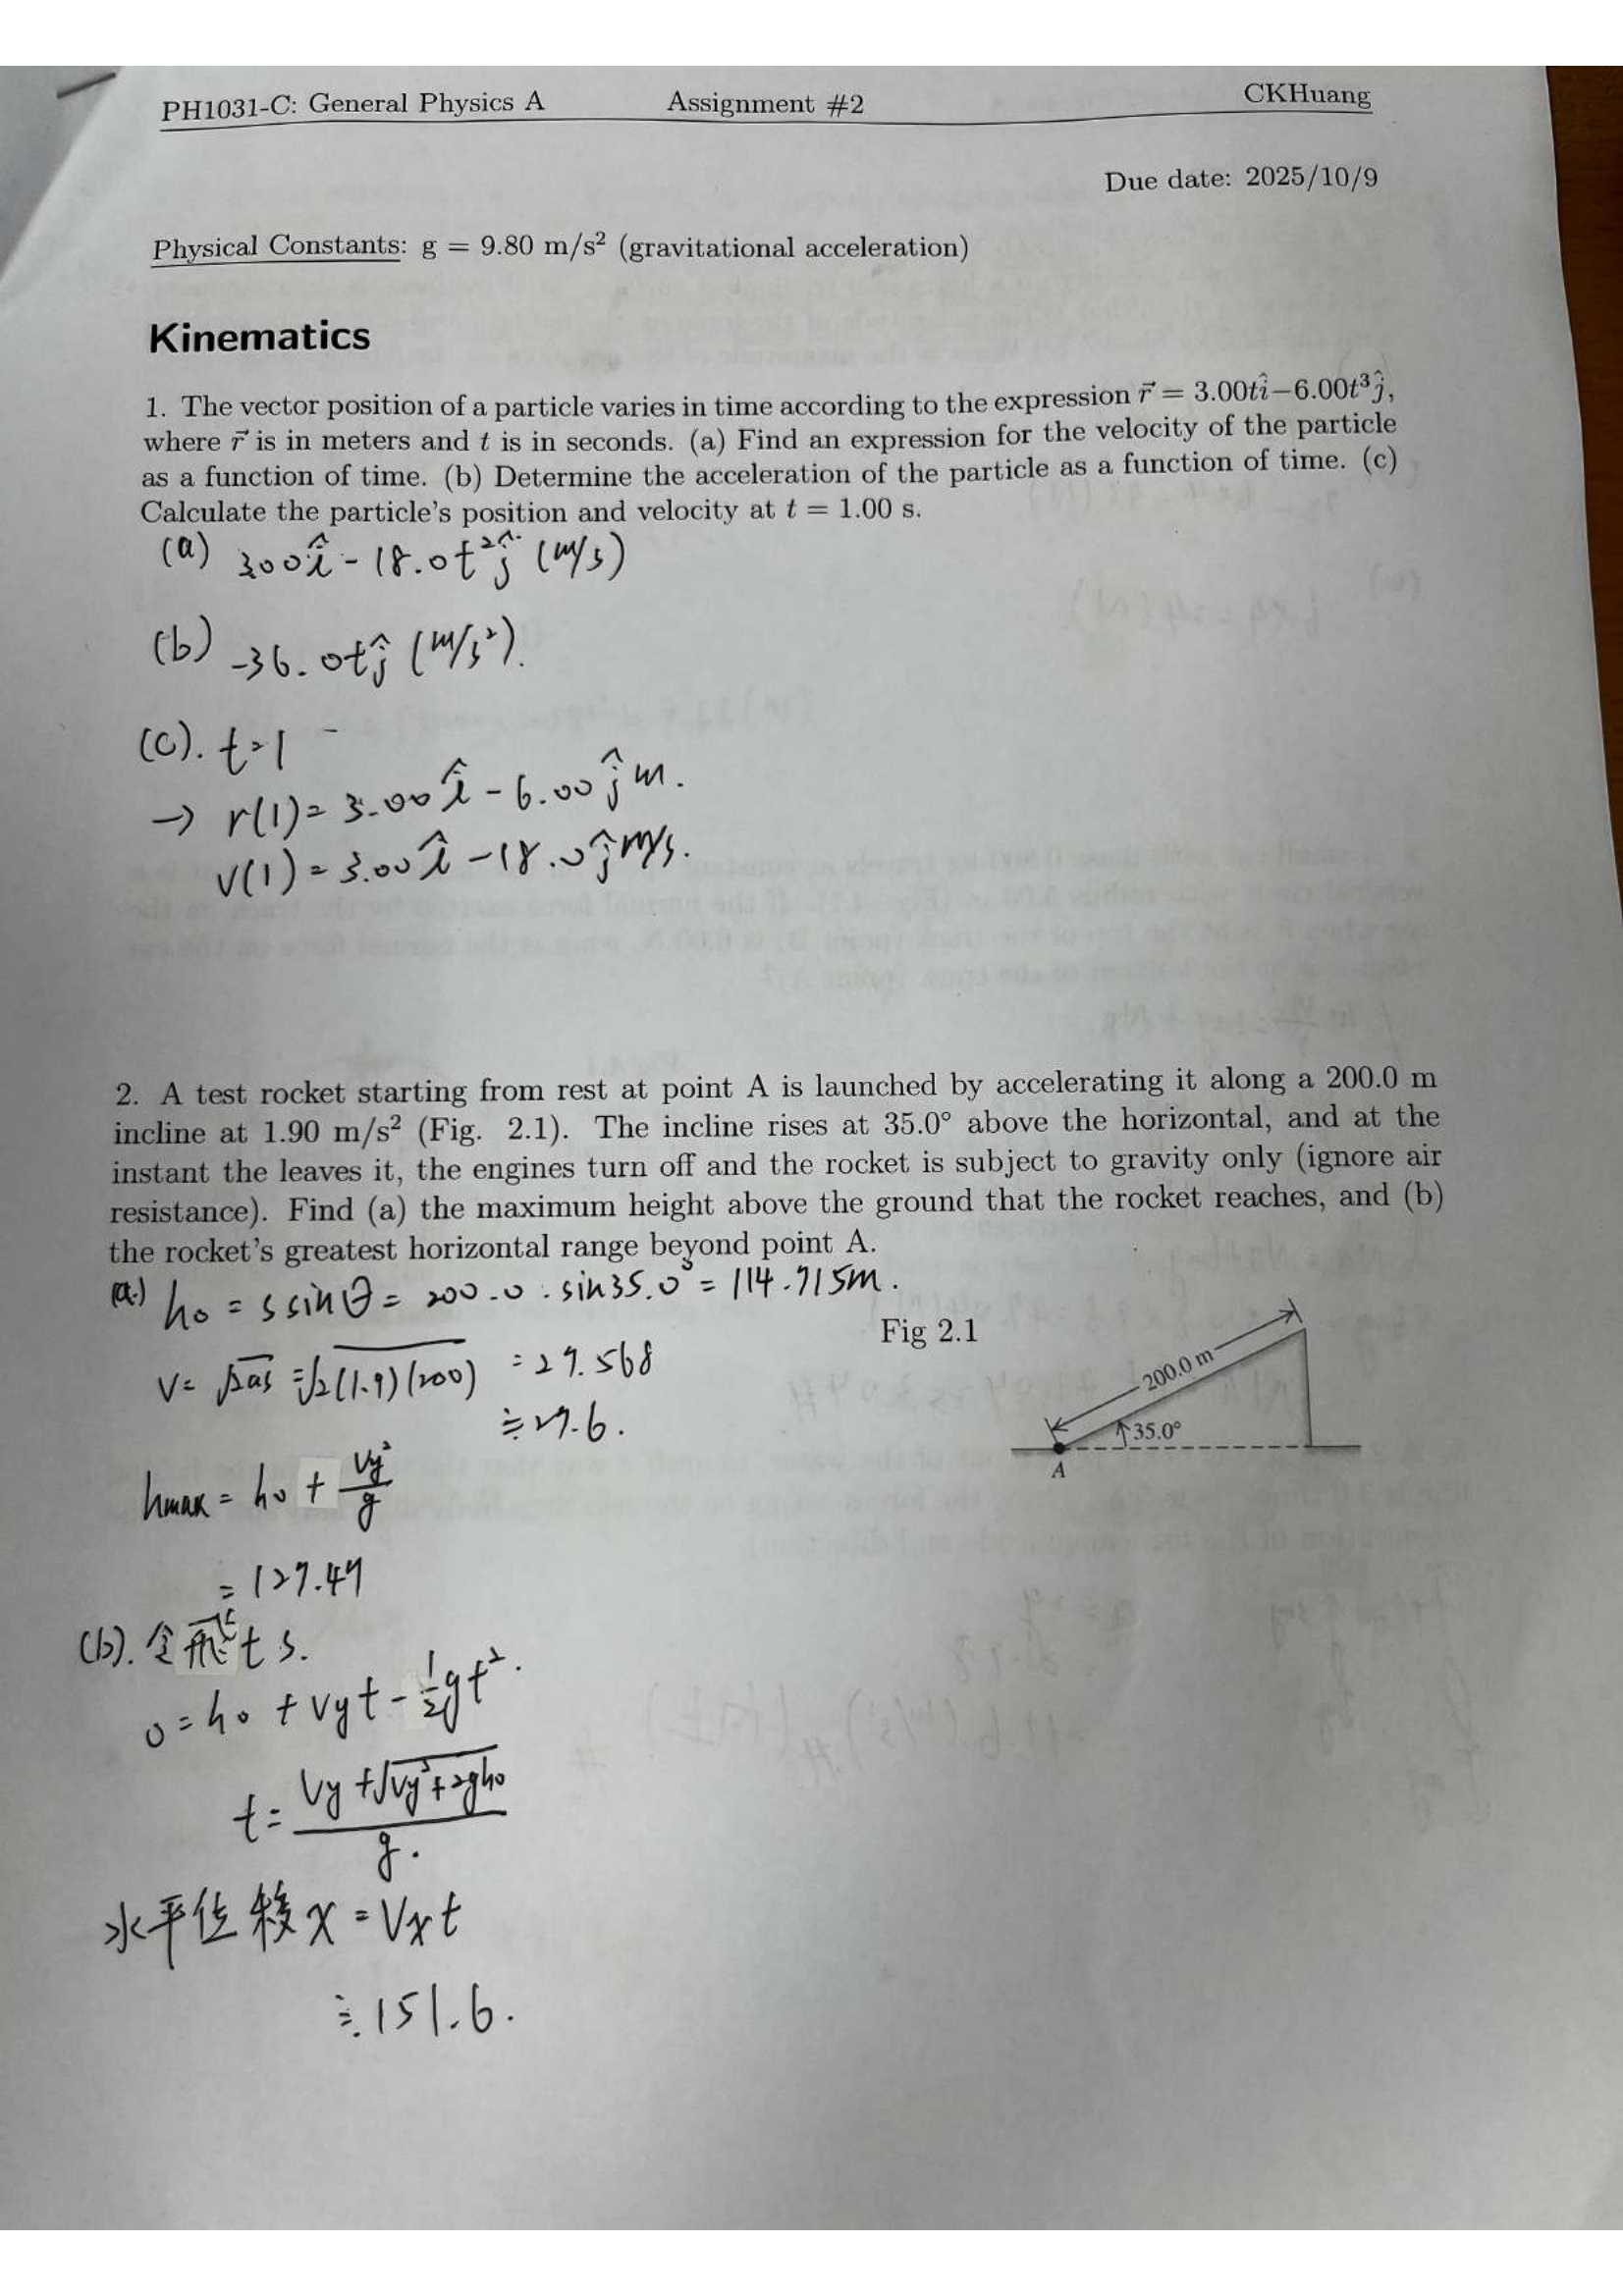 PH1031-C: General Physics A Assignment #2 CKHuang
Due date: 2025/10/9
Physical Constants: g = 9.80 m/s² (gravitational acceleration)
Kinematics
1. The vector position of a particle varies in time according to the expression r⃗ = 3.00tî−6.00t³ĵ,
where r⃗ is in meters and t is in seconds. (a) Find an expression for the velocity of the particle
as a function of time. (b) Determine the acceleration of the particle as a function of time. (c)
Calculate the particle's position and velocity at t = 1.00 s.
(a) 3.00î - 18.0t²ĵ (m/s)
(b) -36.0tĵ (m/s²).
(c). t=1
→ r(1)= 3.00î - 6.00ĵ m.
v(1)=3.00î -18.0ĵ m/s.
2. A test rocket starting from rest at point A is launched by accelerating it along a 200.0 m
incline at 1.90 m/s² (Fig. 2.1). The incline rises at 35.0° above the horizontal, and at the
instant the leaves it, the engines turn off and the rocket is subject to gravity only (ignore air
resistance). Find (a) the maximum height above the ground that the rocket reaches, and (b)
the rocket's greatest horizontal range beyond point A.
(a.) h₀ = s sinθ = 200.0 · sin35.0° = 114.715m.
Fig 2.1
v= √2as =√2(1.9)(200) = 27.568
≒27.6.
200.0 m
35.0°
A
hmax = h₀ + Vy²/g
= 127.47
(b). 令飛 t s.
0 = h₀ + Vyt - ½gt².
t= (Vy+√Vy²+2gh₀)/g.
水平位移 x = Vxt
≒151.6.